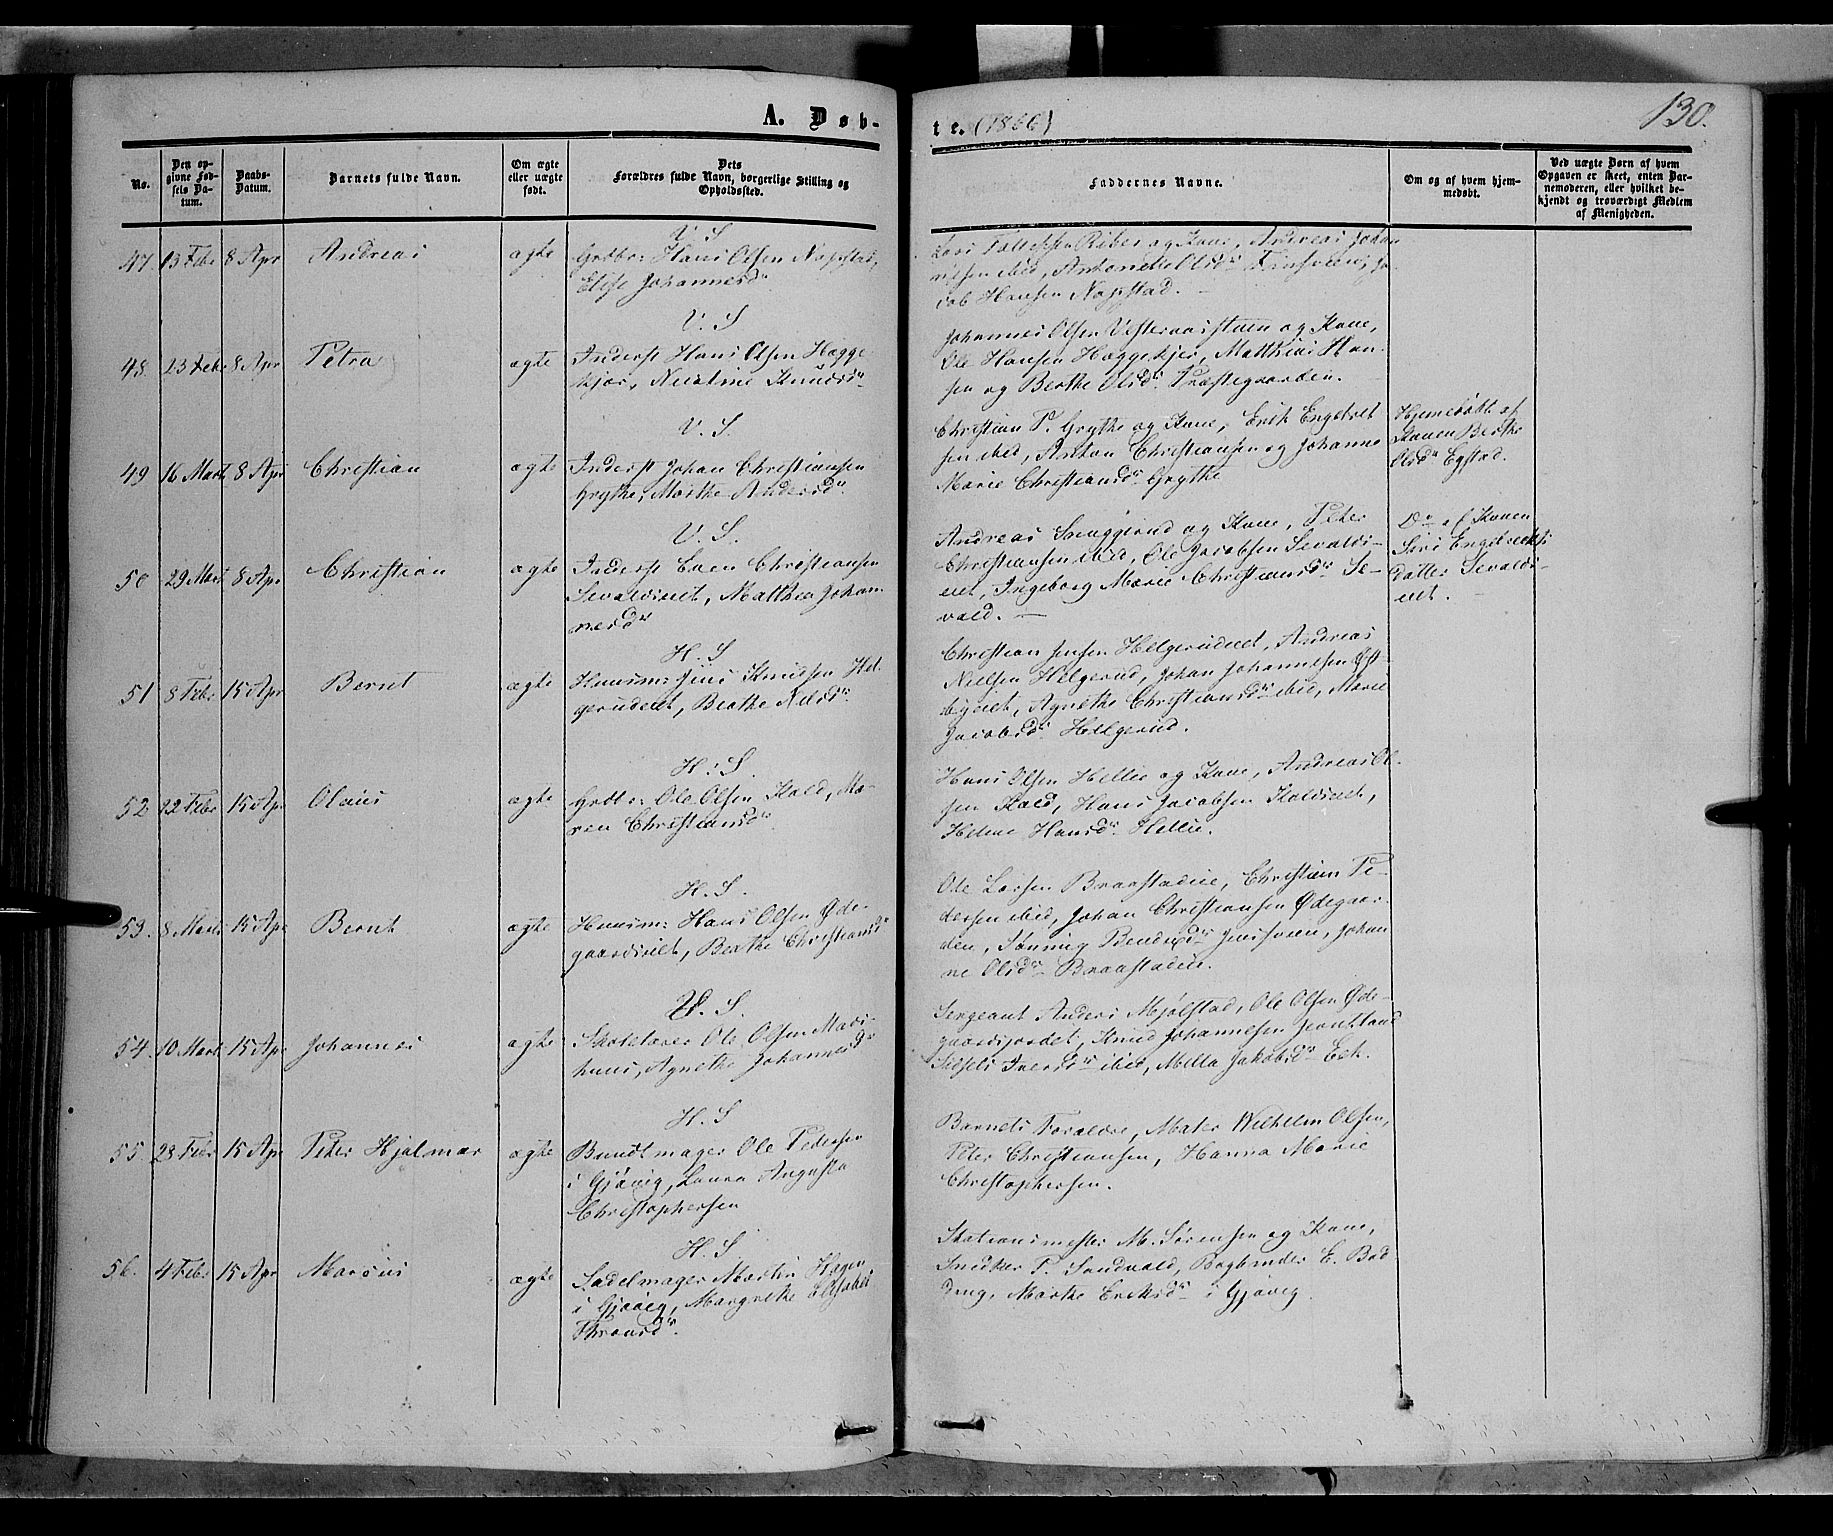 A. Døb-
te. (1866)
130.
No.
Den op-
givne Fød-
sels Da-
tum.
Daabs-
Datum.
Barnets fulde Navn.
Om ægte
eller uægte
født.
Dets
Forældres fulde Navn, borgerlige Stilling og
Opholdssted.
Faddernes Navne.
Om og af hvem hjem-
medøbt.
Ved uægte Børn af hvem
Opgaven er skeet, enten Bar-
nemoderen, eller hvilket be-
kjendt og troværdigt Medlem
af Menigheden.
V. S
47. 13 Febr 8 Apr Andreas ægte Grdbr: Hans Olsen Nøpstad,
Elise Johannesdr
Lars Riber og Kone, Andreas Johan
nesen ibid, Antonette Olsdr
cob Hansen Nøpstad.
V. S
48. 23 Febr 8 Apr Petra ægte Inderst Hans Olsen Hægge-
kjær, Knudsdr
Johannes Olsen Vesteraasstuen og Kone,
Ole Hansen Hæggekjær, Matthias Han-
sen og Berthe Olsdr Præstegaarden.
V. S.
49 16 Marts 8 Apr Christian ægte Inderst Johan Christiansen
Grythe, Marthe Andersdr
Christian P. Grythe og Kone, Erik Engebret
sen ibid, Anton Christiansen og Johanne
Marie Christiansdr Grythe
Hjemedøbt af
Konen Berthe
Olsdr Egstad.
V. S.
50 29 Marts 8 Apr Christian ægte Inderst Even Christiansen
Sevaldseiet, Matthea Johan
nesdr
Andreas Snuggerud og Kone, Peter
Christiansen ibid, Ole Jacobsen Sevalds-
eiet, Ingeborg Marie Christiansdr Se-
vald. —
Do af Konen
Siri Engebrets
datter Sevalds-
eiet.
H. S
51 8 Febr 15 Apr Bernt ægte Huusm: Jens Knudsen Hel-
gerudeiet, Berthe Nilsdr
Christian Jensen Helgerudeiet, Andreas
Nielsen Helgerud, Johan Johannesen Øst
byeiet, Agnethe Christiansdr ibid, Marie
Jacobsdr Helgerud.
H: S.
52 22 Febr 15 Apr Olaus ægte Grdbr: Ole Olsen Kald, Ma-
ren Christiansdr
Hans Olsen Hellie og Kone, Andreas Ol-
sen Kald, Hans Jacobsen Kaldseiet,
Helene Hansdr Hellie.
H. S.
53. 8 Marts 15 Apr Bernt ægte Huusm: Hans Olsen Øde-
gaardseiet, Berthe Christiansdr
Ole Larsen Braastadeie, Christian Pe-
dersen ibid, Johan Christiansen Ødegaar-
den, Bendixdr Johan
ne Olsdr Braastadeie.
H. S.
54. 10 Marts 15 Apr Johannes ægte Skolelærer Ole Olsen Mari-
huus, Agnethe Johannesdr
Sergeant Anders Mjølstad, Ole Olsen Øde-
gaardsjordet, Knud Johannesen
Sidsels Iversdr ibid, Mella Jakobsdr Eek.
H. S
55. 28 Febr 15 Apr Peter Hjalmar ægte Bundtmager Ole Pedersen
i Gjøvig, Laura Augusta
Christophersen
Barnets Forældre, Maler Wilhelm Olsen,
Peter Christiansen, Hanna Marie
Christophersen.
H. S
56. 4 Febr 15 Apr Marius ægte Sadelmager Martin Hagen
i Gjøvig, Margrethe Elisabet
Thronsdr
Stationsmester M. Sørensen og Kone,
Snedker P. Sandvold, Bogbinder E. Bod
ding, Marthe Eriksdr i Gjøvig.